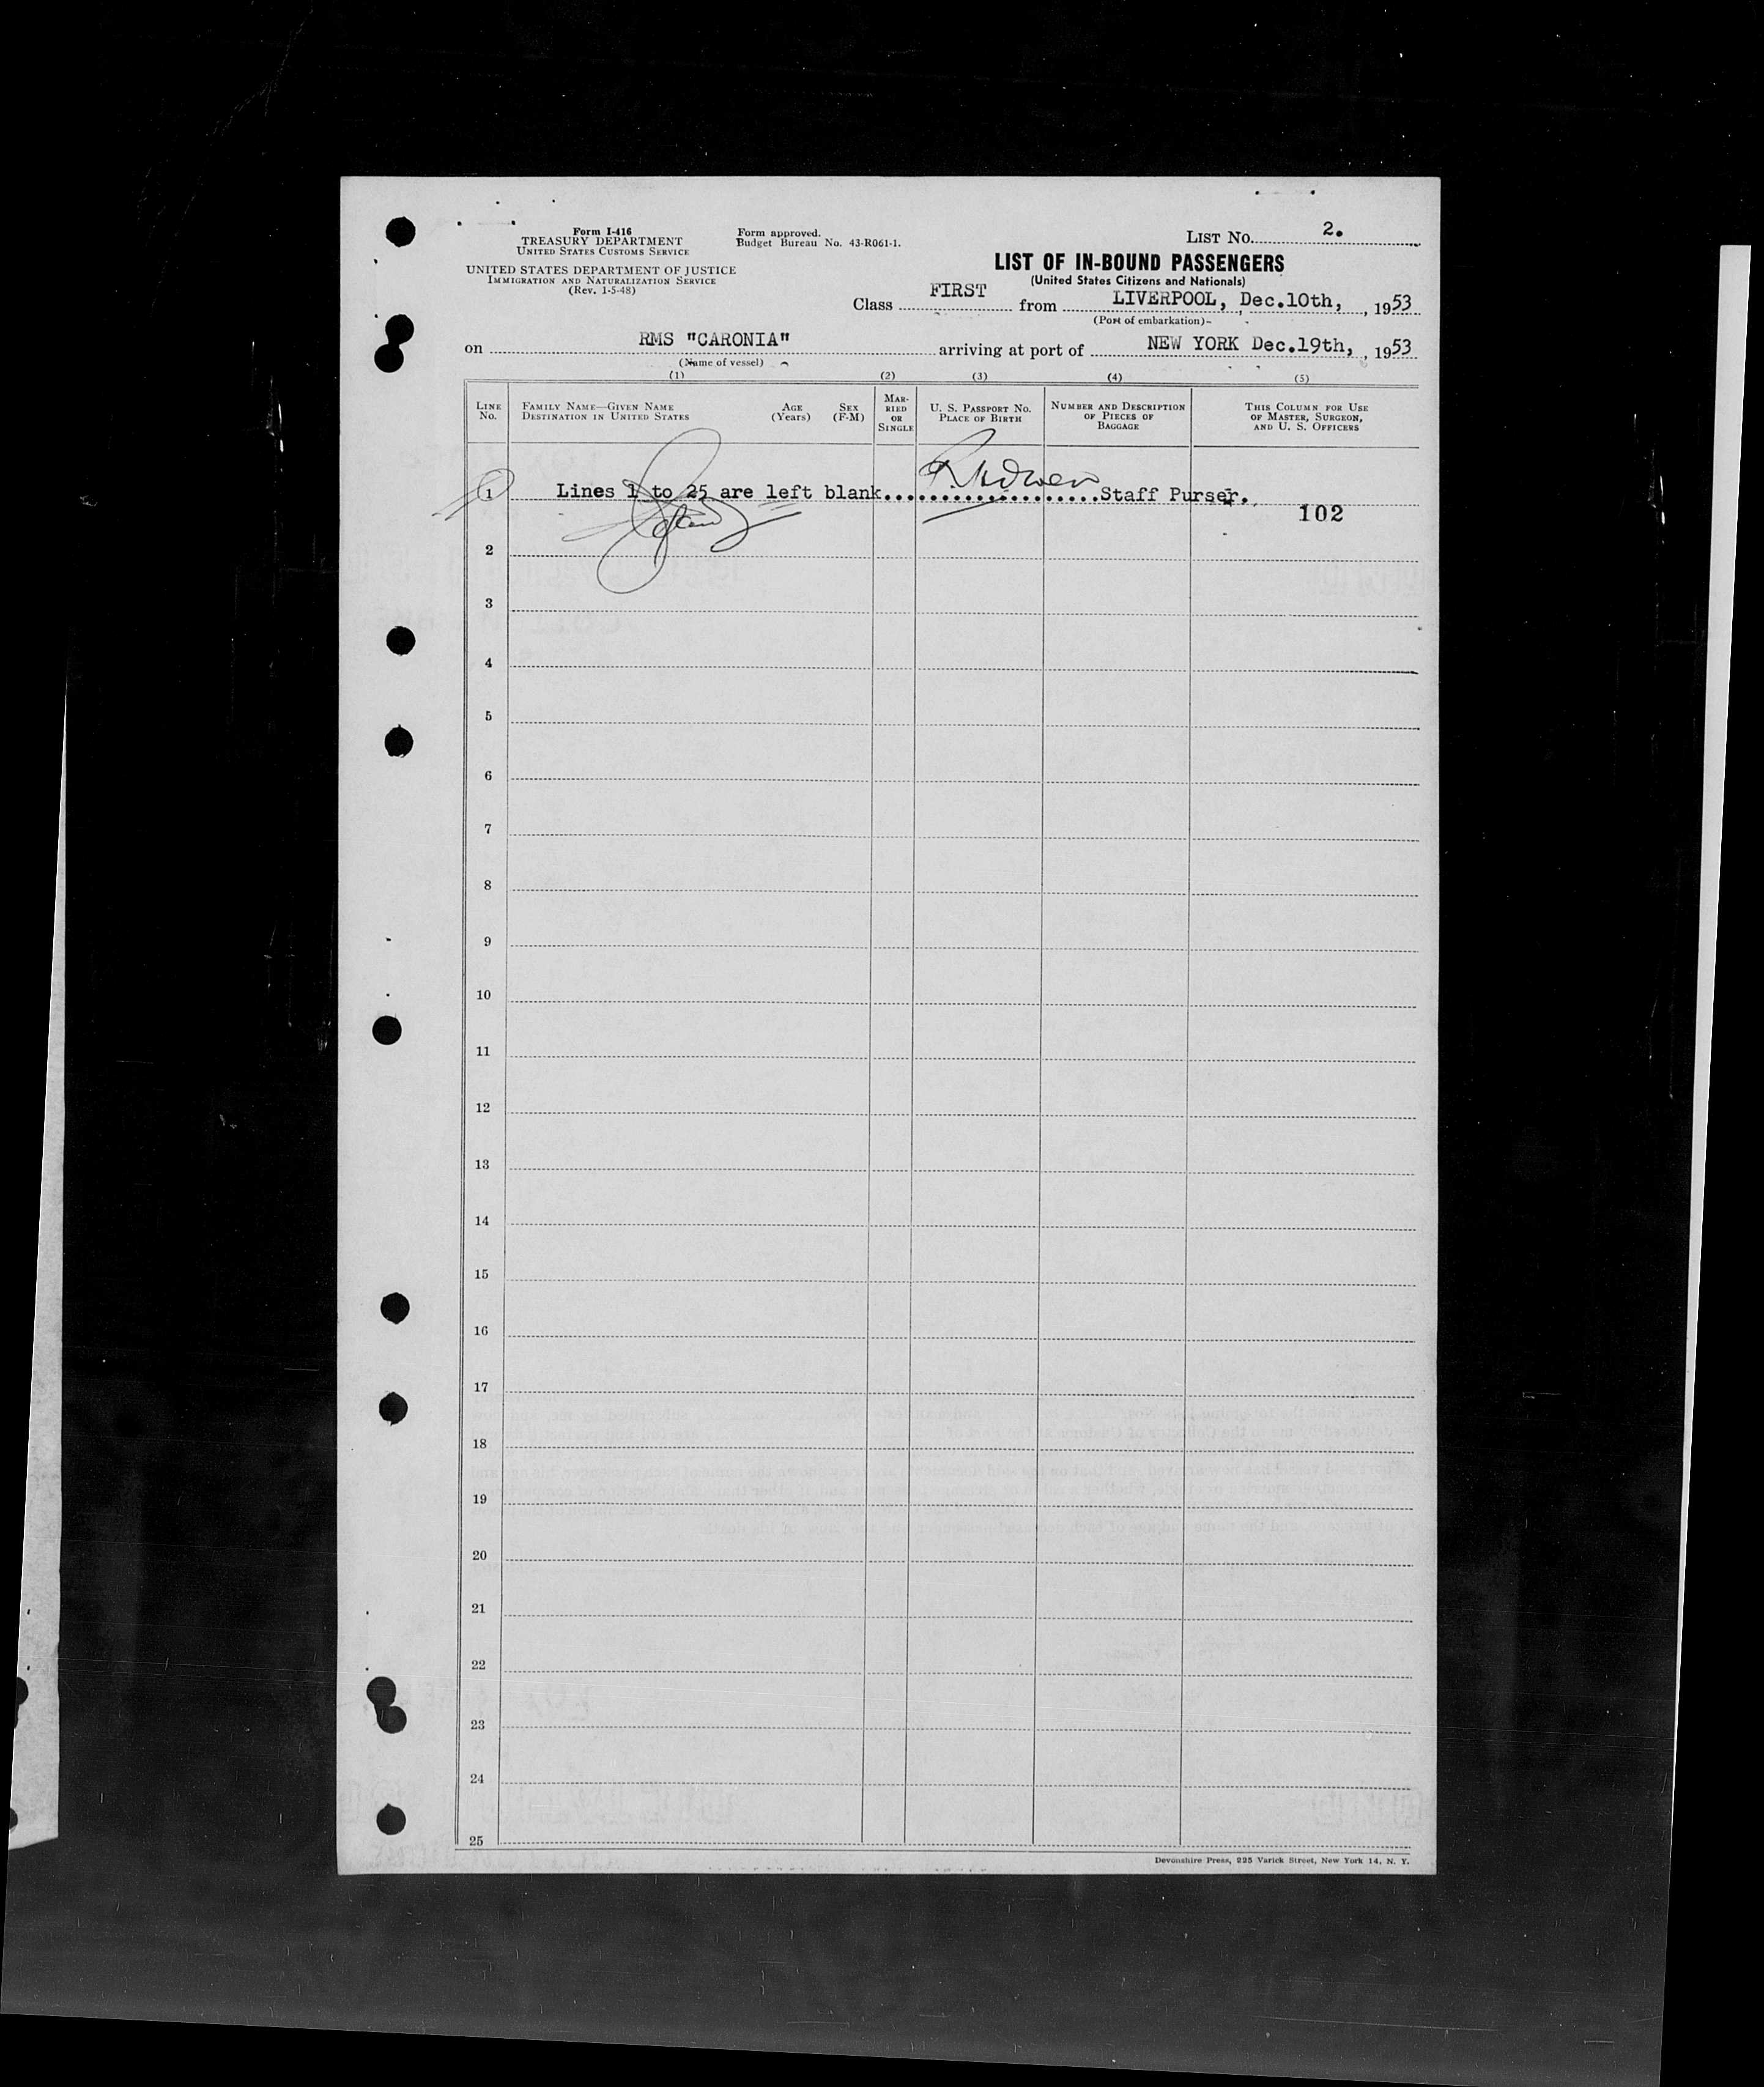 Form I-416
TREASURY DEPARTMENT
UNITED STATES CUSTOMS SERVICE
UNITED STATES DEPARTMENT OF JUSTICE
IMMIGRATION AND NATURALIZATION SERVICE
(Rev. 1-5-48)
Form approved.
Budget Bureau No. 43-R061-1.
LIST NO. 2.
LIST OF IN-BOUND PASSENGERS
(United States Citizens and Nationals)
Class FIRST from LIVERPOOL, Dec.10th, , 1953
(Port of embarkation)
on RMS "CARONIA" arriving at port of NEW YORK Dec.19th, , 1953
(Name of vessel)
(1) (2) (3) (4) (5)
LINE NO.
FAMILY NAME—GIVEN NAME
DESTINATION IN UNITED STATES
AGE (Years)
SEX (F-M)
MARRIED OR SINGLE
U. S. PASSPORT NO.
PLACE OF BIRTH
NUMBER AND DESCRIPTION
OF PIECES OF
BAGGAGE
THIS COLUMN FOR USE
OF MASTER, SURGEON,
AND U. S. OFFICERS
1 Lines 1 to 25 are left blank...................Staff Purser.
102
2
3
4
5
6
7
8
9
10
11
12
13
14
15
16
17
18
19
20
21
22
23
24
25
Devonshire Press, 225 Varick Street, New York 14, N. Y.